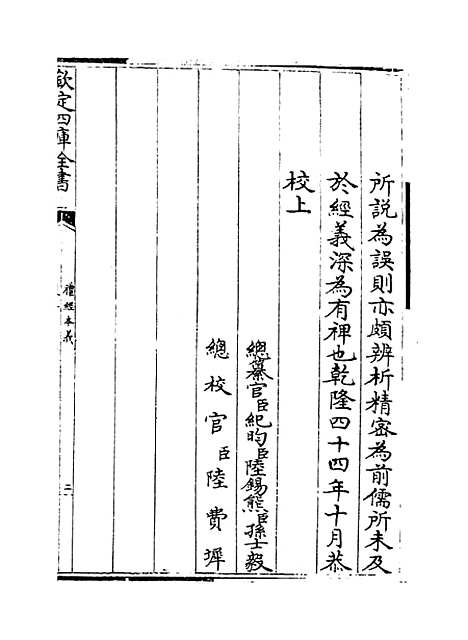 所説為誤則亦頗辨析精密為前儒所未及
於經義深為有裨也乾隆四十四年十月恭
校上
總纂官臣紀昀臣陸錫熊臣孫士毅
總校官臣陸費墀
欽定四庫全書
禮經本義
二